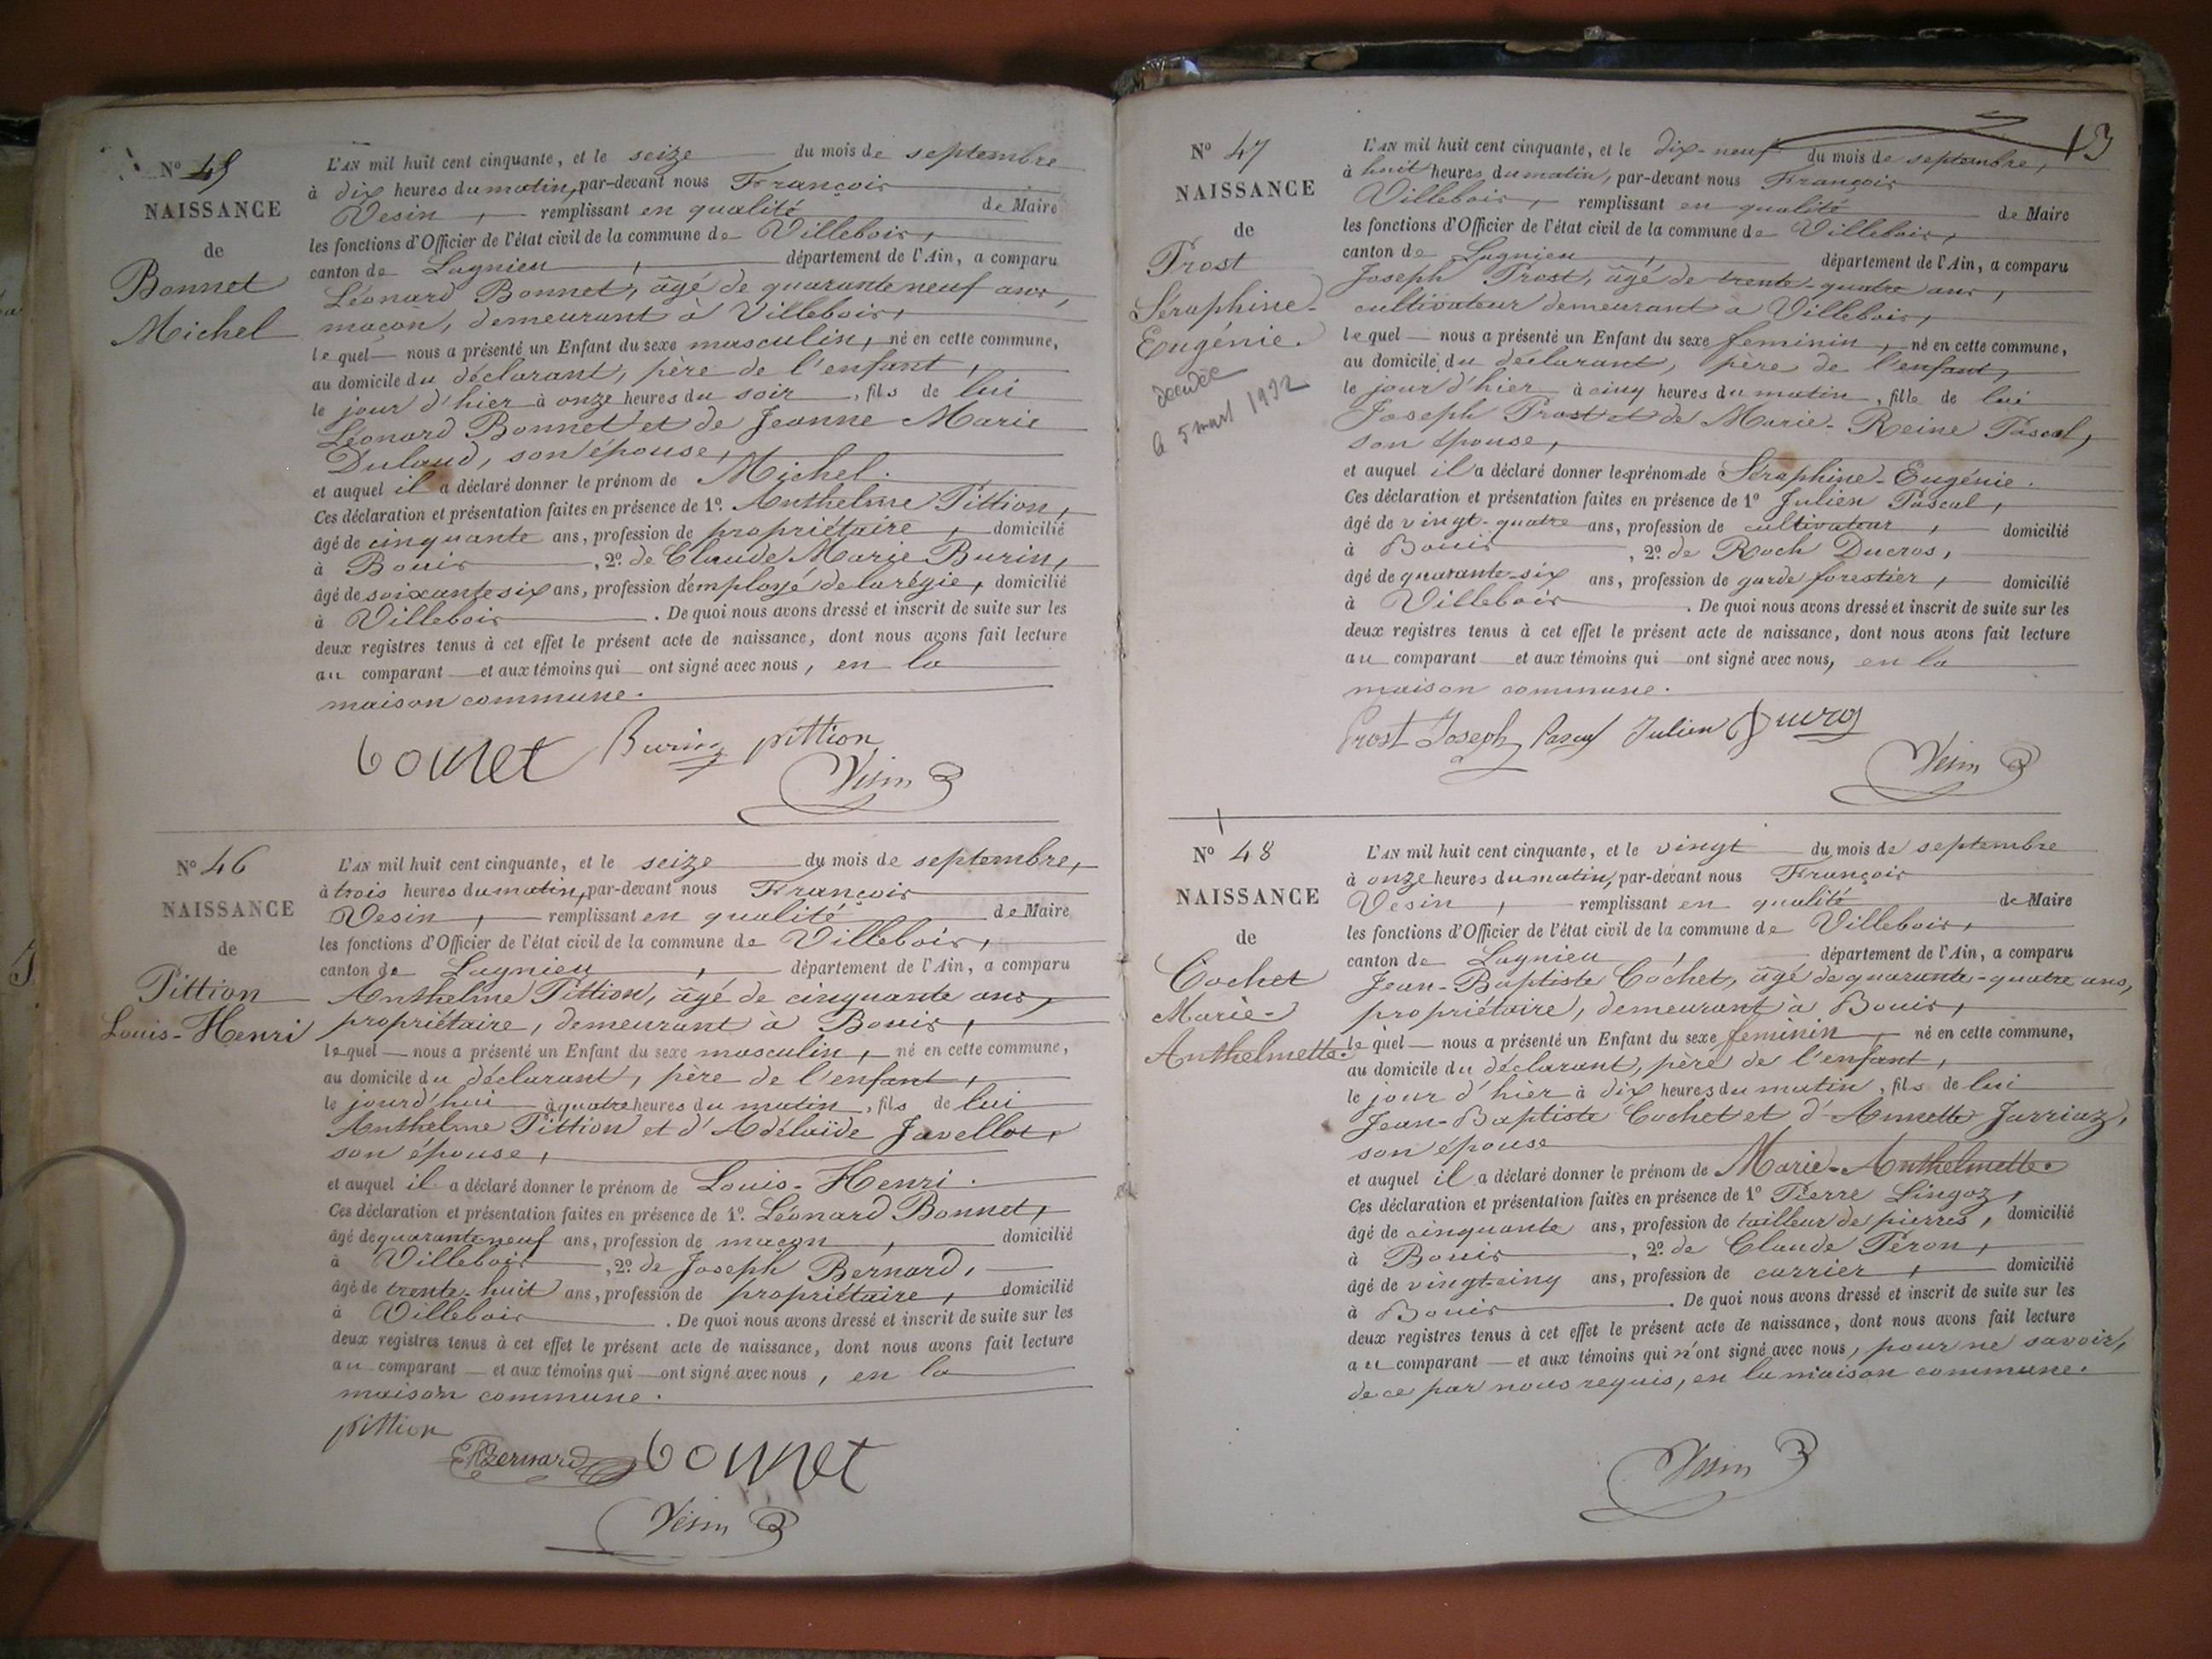 N.º 45
NAISSANCE
de
Bonnet
Michel
L'AN mil huit cent cinquante, et le seize du mois de septembre
à dix heures du matin, par-devant nous François
Vesin, remplissant en qualité de Maire
les fonctions d'Officier de l'état civil de la commune de Villebois,
canton de Lagnieu, département de l'Ain, a comparu
Léonard Bonnet, âgé de quarante neuf ans,
maçon, demeurant à Villebois,
lequel nous a présenté un Enfant du sexe masculin, né en cette commune,
au domicile du déclarant, père de l'enfant,
le jour d'hier à onze heures du soir, fils de lui
Léonard Bonnet et de Jeanne Marie
Dulaud, son épouse,
et auquel il a déclaré donner le prénom de Michel.
Ces déclaration et présentation faites en présence de 1º. Anthelme Pittion,
âgé de cinquante ans, profession de propriétaire, domicilié
à Bouis, 2º. de Claude Marie Burin,
âgé de soixante six ans, profession d'employé de la régie, domicilié
à Villebois. De quoi nous avons dressé et inscrit de suite sur les
deux registres tenus à cet effet le présent acte de naissance, dont nous avons fait lecture
au comparant et aux témoins qui ont signé avec nous, en la
maison commune.
bonnet Burin pittion
Vesin
Nº 46
NAISSANCE
de
Pittion
Louis-Henri
L'AN mil huit cent cinquante, et le seize du mois de septembre,
à trois heures du matin, par-devant nous François
Vesin, remplissant en qualité de Maire
les fonctions d'Officier de l'état civil de la commune de Villebois,
canton de Lagnieu, département de l'Ain, a comparu
Anthelme Pittion, âgé de cinquante ans,
propriétaire, demeurant à Bouis,
lequel nous a présenté un Enfant du sexe masculin, né en cette commune,
au domicile du déclarant, père de l'enfant,
le jourd'hui à quatre heures du matin, fils de lui
Anthelme Pittion et d'Adélaïde Javellot,
son épouse,
et auquel il a déclaré donner le prénom de Louis-Henri.
Ces déclaration et présentation faites en présence de 1º. Léonard Bonnet,
âgé de quarante neuf ans, profession de maçon, domicilié
à Villebois, 2º. de Joseph Bernard,
âgé de trente-huit ans, profession de propriétaire, domicilié
à Villebois. De quoi nous avons dressé et inscrit de suite sur les
deux registres tenus à cet effet le présent acte de naissance, dont nous avons fait lecture
au comparant et aux témoins qui ont signé avec nous, en la
maison commune.
pittion
Bernard bonnet
Vesin
13
Nº 47
NAISSANCE
de
Prost
Séraphine-
Eugénie.
décédée
le 5 mars 1932
L'AN mil huit cent cinquante, et le dix-neuf du mois de septembre,
à huit heures du matin, par-devant nous François
Villebois, remplissant en qualité de Maire
les fonctions d'Officier de l'état civil de la commune de Villebois,
canton de Lagnieu, département de l'Ain, a comparu
Joseph Prost, âgé de trente-quatre ans,
cultivateur demeurant à Villebois,
lequel nous a présenté un Enfant du sexe feminin, né en cette commune,
au domicile du déclarant, père de l'enfant,
le jour d'hier à cinq heures du matin, fille de lui
Joseph Prost et de Marie-Reine Pascal,
son épouse,
et auquel il a déclaré donner les prénoms de Séraphine-Eugénie.
Ces déclaration et présentation faites en présence de 1º Julien Pascal,
âgé de vingt-quatre ans, profession de cultivateur, domicilié
à Bouis, 2º. de Roch Ducros,
âgé de quarante-six ans, profession de garde forestier, domicilié
à Villebois. De quoi nous avons dressé et inscrit de suite sur les
deux registres tenus à cet effet le présent acte de naissance, dont nous avons fait lecture
au comparant et aux témoins qui ont signé avec nous, en la
maison commune.
Prost Joseph Pascal Julien Ducros
Vesin
Nº 48
NAISSANCE
de
Cochet
Marie-
Anthelmette.
L'AN mil huit cent cinquante, et le vingt du mois de septembre
à onze heures du matin, par-devant nous François
Vesin, remplissant en qualité de Maire
les fonctions d'Officier de l'état civil de la commune de Villebois,
canton de Lagnieu, département de l'Ain, a comparu
Jean-Baptiste Cochet, âgé de quarante-quatre ans,
propriétaire, demeurant à Bouis,
lequel nous a présenté un Enfant du sexe feminin, né en cette commune,
au domicile du déclarant, père de l'enfant,
le jour d'hier à dix heures du matin, fils de lui
Jean-Baptiste Cochet et d'Annette Jarriaz,
son épouse
et auquel il a déclaré donner le prénom de Marie-Anthelmette.
Ces déclaration et présentation faites en présence de 1º Pierre Lingoz,
âgé de cinquante ans, profession de tailleur de pierres, domicilié
à Bouis, 2º. de Claude Péron,
âgé de vingt-cinq ans, profession de carrier, domicilié
à Bouis. De quoi nous avons dressé et inscrit de suite sur les
deux registres tenus à cet effet le présent acte de naissance, dont nous avons fait lecture
au comparant et aux témoins qui n'ont signé avec nous, pour ne savoir,
de ce par nous requis, en la maison commune.
Vesin